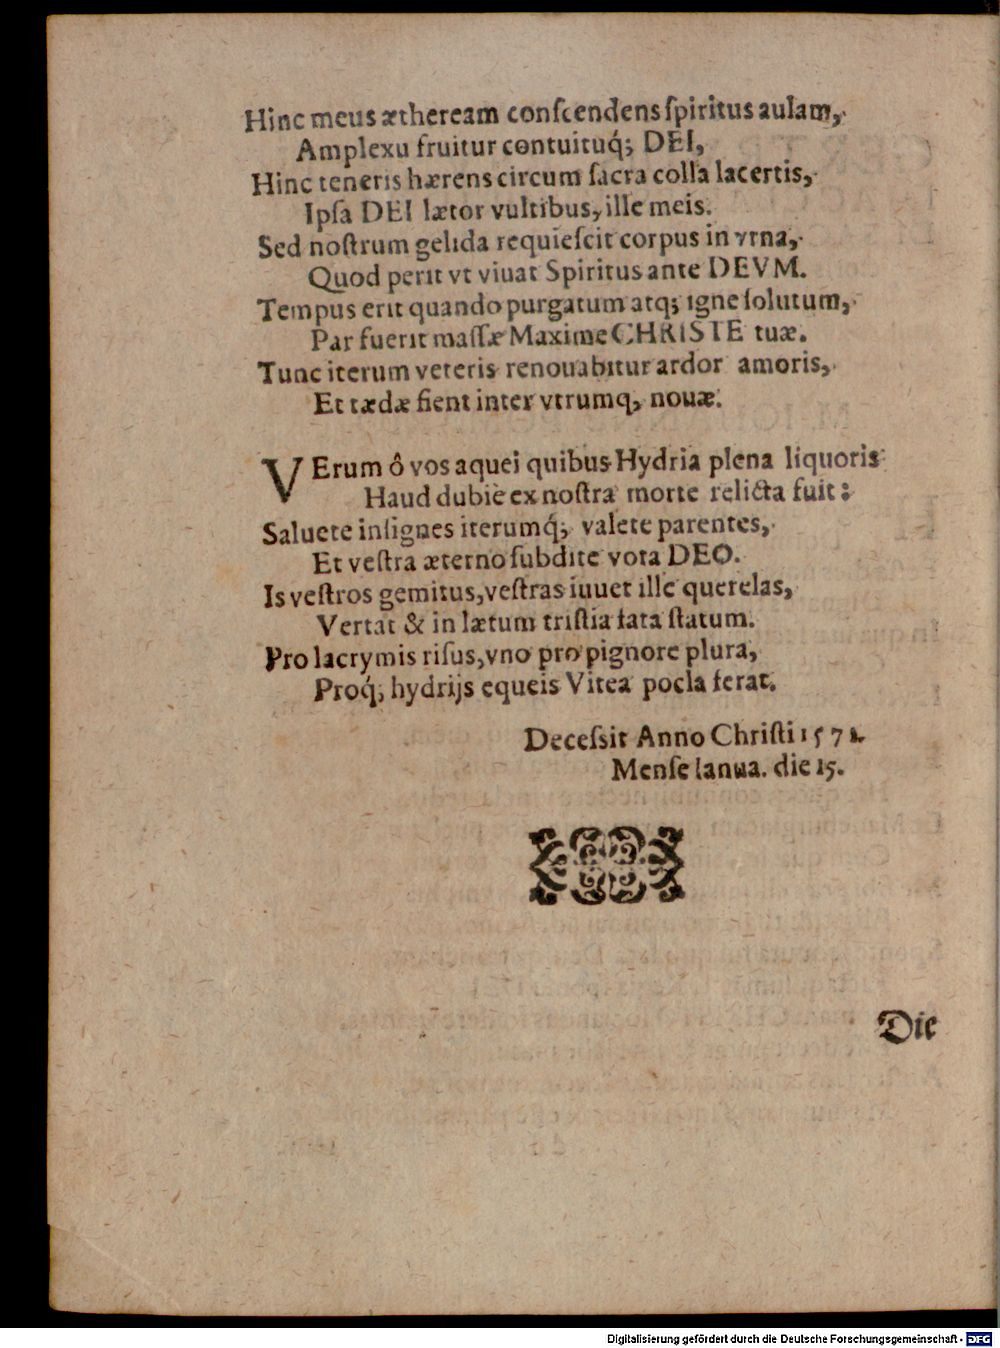 Hinc meus ætheream conſcendens ſpiritus aulam,
Amplexu fruitur contuituq́; DEI,
Hinc teneris hærens circum ſacra colla lacertis,
Ipſa DEI lætor vultibus, ille meis.
Sed noſtrum gelida requieſcit corpus in vrna,
Quod perit vt viuat Spiritus ante DEVM.
Tempus erit quando purgatum atq; igne ſolutum,
Par fuerit maſſæ Maxime CHRISTE tuæ.
Tunc iterum veteris renouabitur ardor amoris,
Et tædæ fient inter vtrumq, nouæ.
VErum ô vos aquei quibus Hydria plena liquoris
Haud dubiè ex noſtra morte relicta fuit:
Saluete inſignes iterumq́; valete parentes,
Et veſtra æterno ſubdite vota DEO.
Is veſtros gemitus, veſtras iuuet ille querelas,
Vertat & in lætum triſtia fata ſtatum.
Pro lacrymis riſus, vno pro pignore plura,
Proq́; hydrijs equeis Vitea pocla ferat.
Deceſsit Anno Chriſti 1571.
Menſe Ianua. die 15.
Die
Digitalisierung gefördert durch die Deutsche Forschungsgemeinschaft - DFG